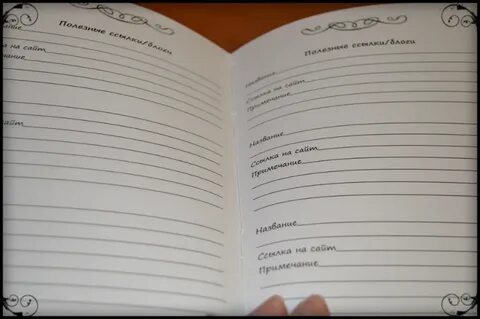 Полезные ссылки/блоги
сайт
Полезные ссылки/блоги
Название
Ссылка на сайт
Примечание
Название
Ссылка на сайт
Примечание
Название
Ссылка на сайт
Примечание